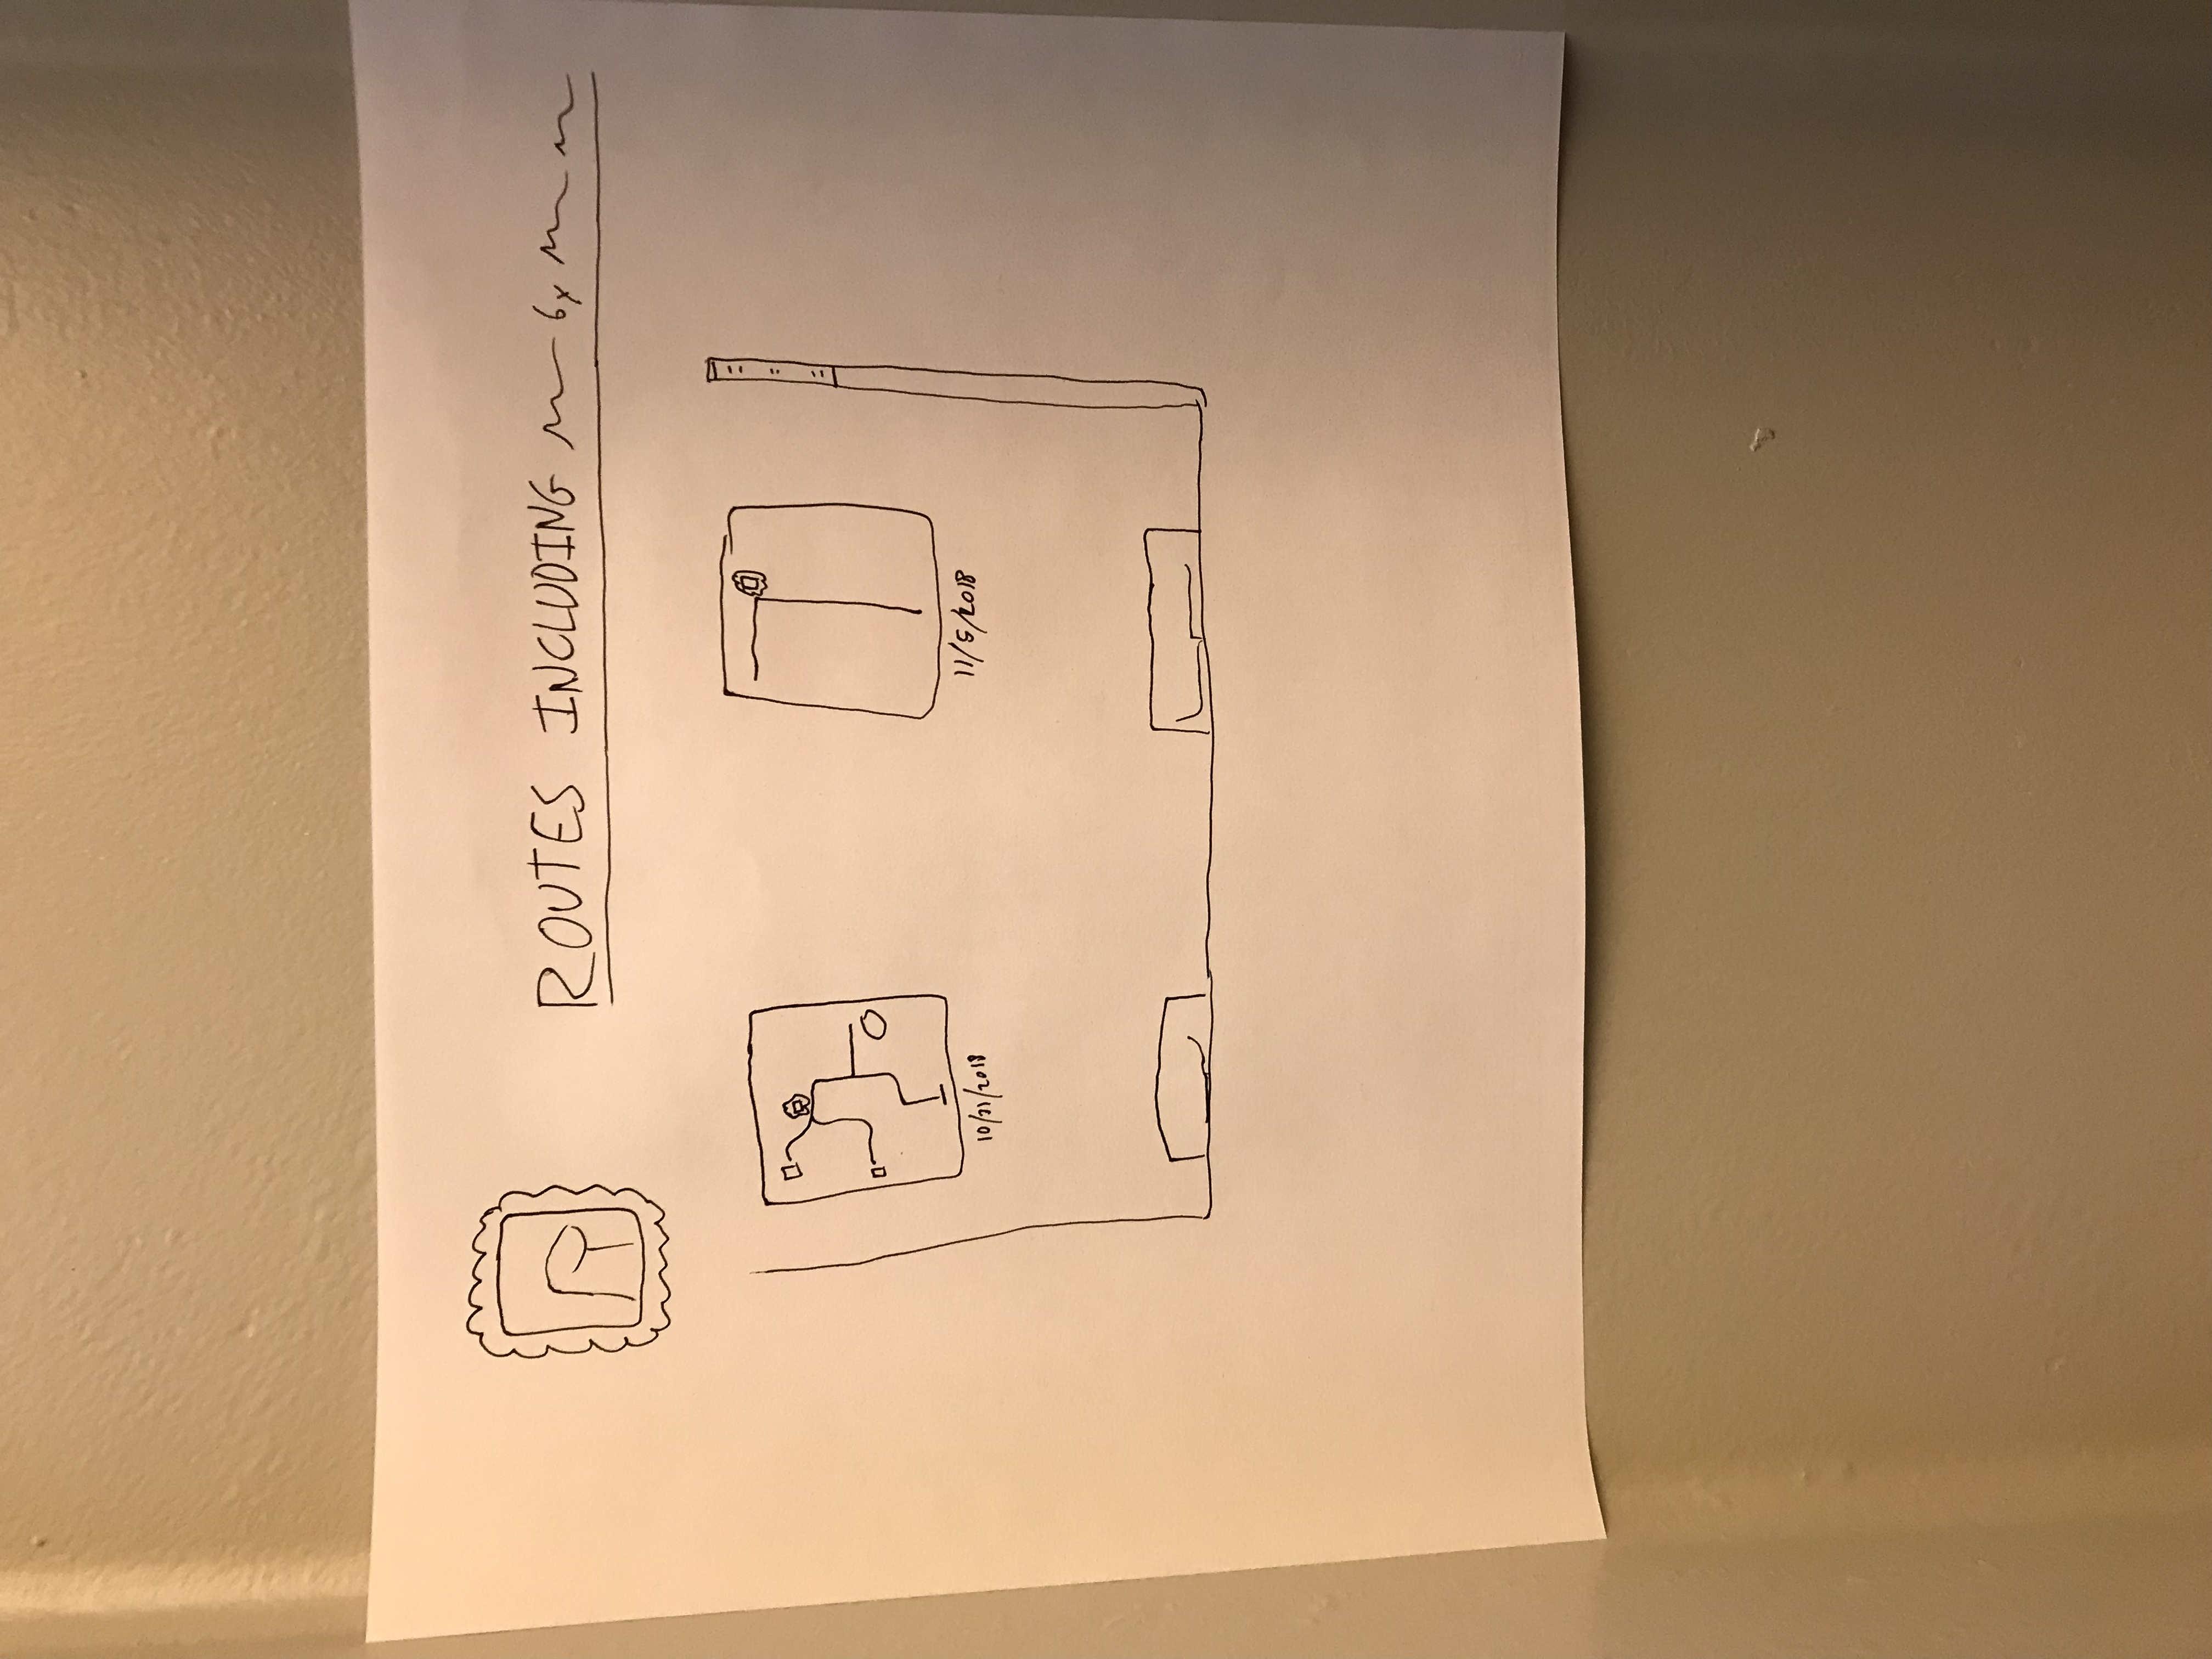 ROUTES INCLUDING
10/21/2018
11/5/2018